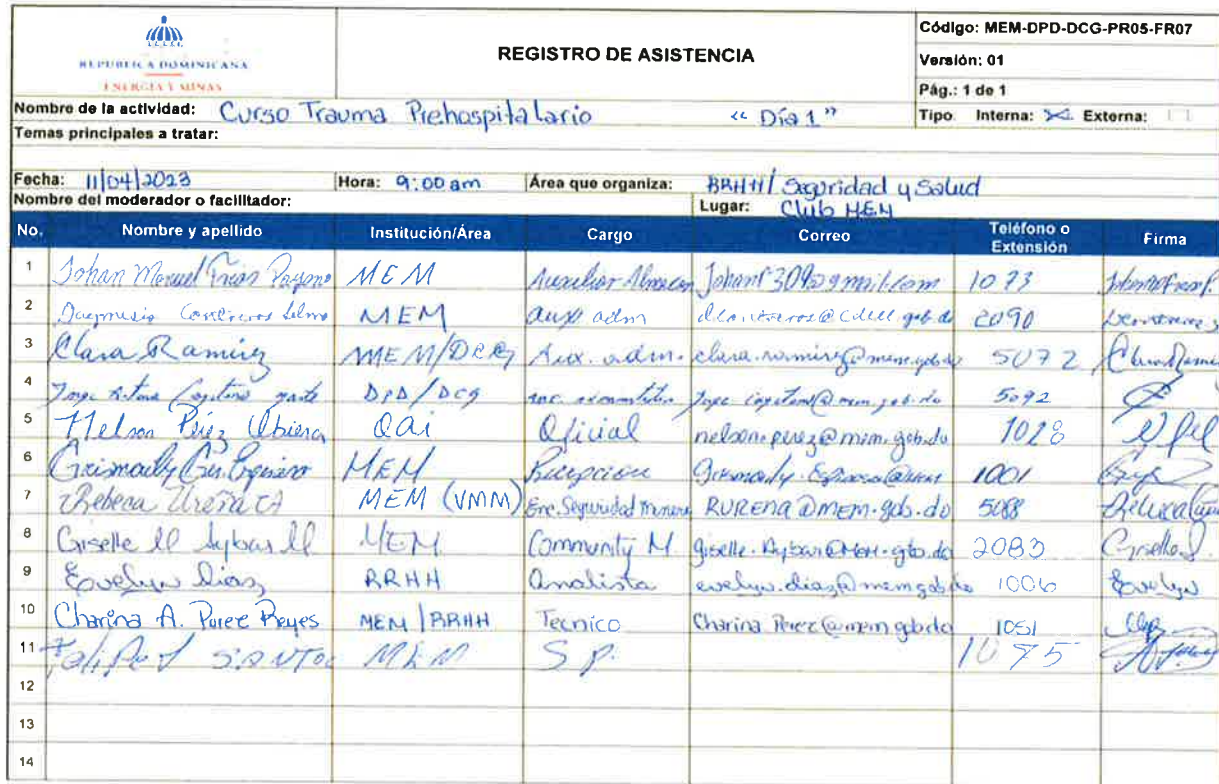 REPUBLICA DOMINICANA
ENERGÍA Y MINAS
REGISTRO DE ASISTENCIA
Código: MEM-DPD-DCG-PR05-FR07
Versión: 01
Pág.: 1 de 1
Nombre de la actividad: Curso Trauma Prehospitalario "Día 1"
Tipo Interna: Externa:
Temas principales a tratar:
Fecha: 11/04/2023 Hora: 9:00 am Área que organiza: RRHH/ Seguridad y Salud
Nombre del moderador o facilitador: Lugar: Club MEM
No. Nombre y apellido Institución/Área Cargo Correo Teléfono o Extensión Firma
1 Johan Manuel MEM Auxiliar 1073
2 Contreras MEM aux adm 2090
3 Clara Ramirez MEM/DCG Aux. adm. clara.ramirez@mem.gob.do 5072
4 DPD/DCG 5092
5 Nelson Pérez Ubiera OAI Oficial nelson.perez@mem.gob.do 1028
6 MEM Recepcion 1001
7 Rebeca Ureña MEM (VMM) Enc. Seguridad Minera RURENA@mem.gob.do 5088
8 Giselle M Aybar M MEM Community M. giselle.Aybar@MEM.gob.do 2083
9 Evelyn Diaz RRHH Analista evelyn.diaz@mem.gob.do 1006 Evelyn
10 Charina A. Perez Reyes MEM/RRHH Tecnico Charina Perez@mem.gob.do 1051
11 MEM S.P. 1075
12
13
14